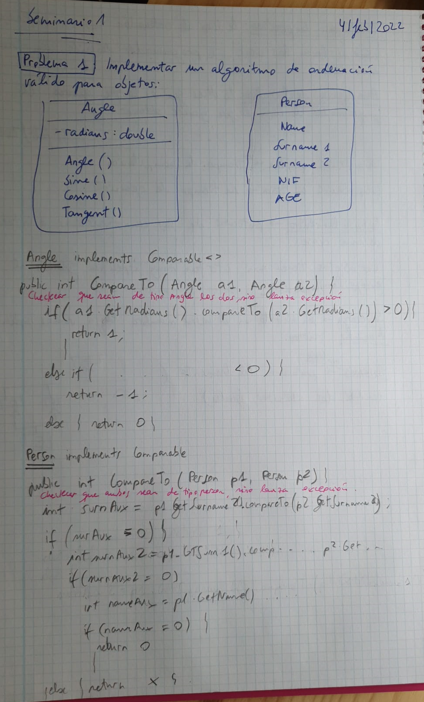 Seminario 1
4/feb/2022
Problema 1 Implementar un algoritmo de ordenación
válido para objetos:
Angle
- radians : double
Angle ()
Sine ()
Cosine ()
Tangent ()
Person
Name
Surname 1
Surname 2
NIF
AGE
Angle implements Comparable <>
public int CompareTo (Angle a1, Angle a2) {
Checkear que sean de tipo Angle los dos, sino lanza excepción
if( a1.GetRadians().compareTo (a2.GetRadians()) > 0) {
return 1;
}
else if ( . . . < 0) {
return -1;
else { return 0 }
Person implements Comparable
public int CompareTo (Person p1, Person p2) {
Checkear que ambos sean de tipo person sino lanza excepción.
int surnAux = p1.getSurname2().compareTo(p2.getSurname2);
if (surAux = 0) {
int surnAux2 = p1. .comp. . . . . p2.Get . .
if(surnAux2 = 0)
int nameAux = p1.GetName() . . .
if (namAux = 0) {
return 0
}
}else { return x }